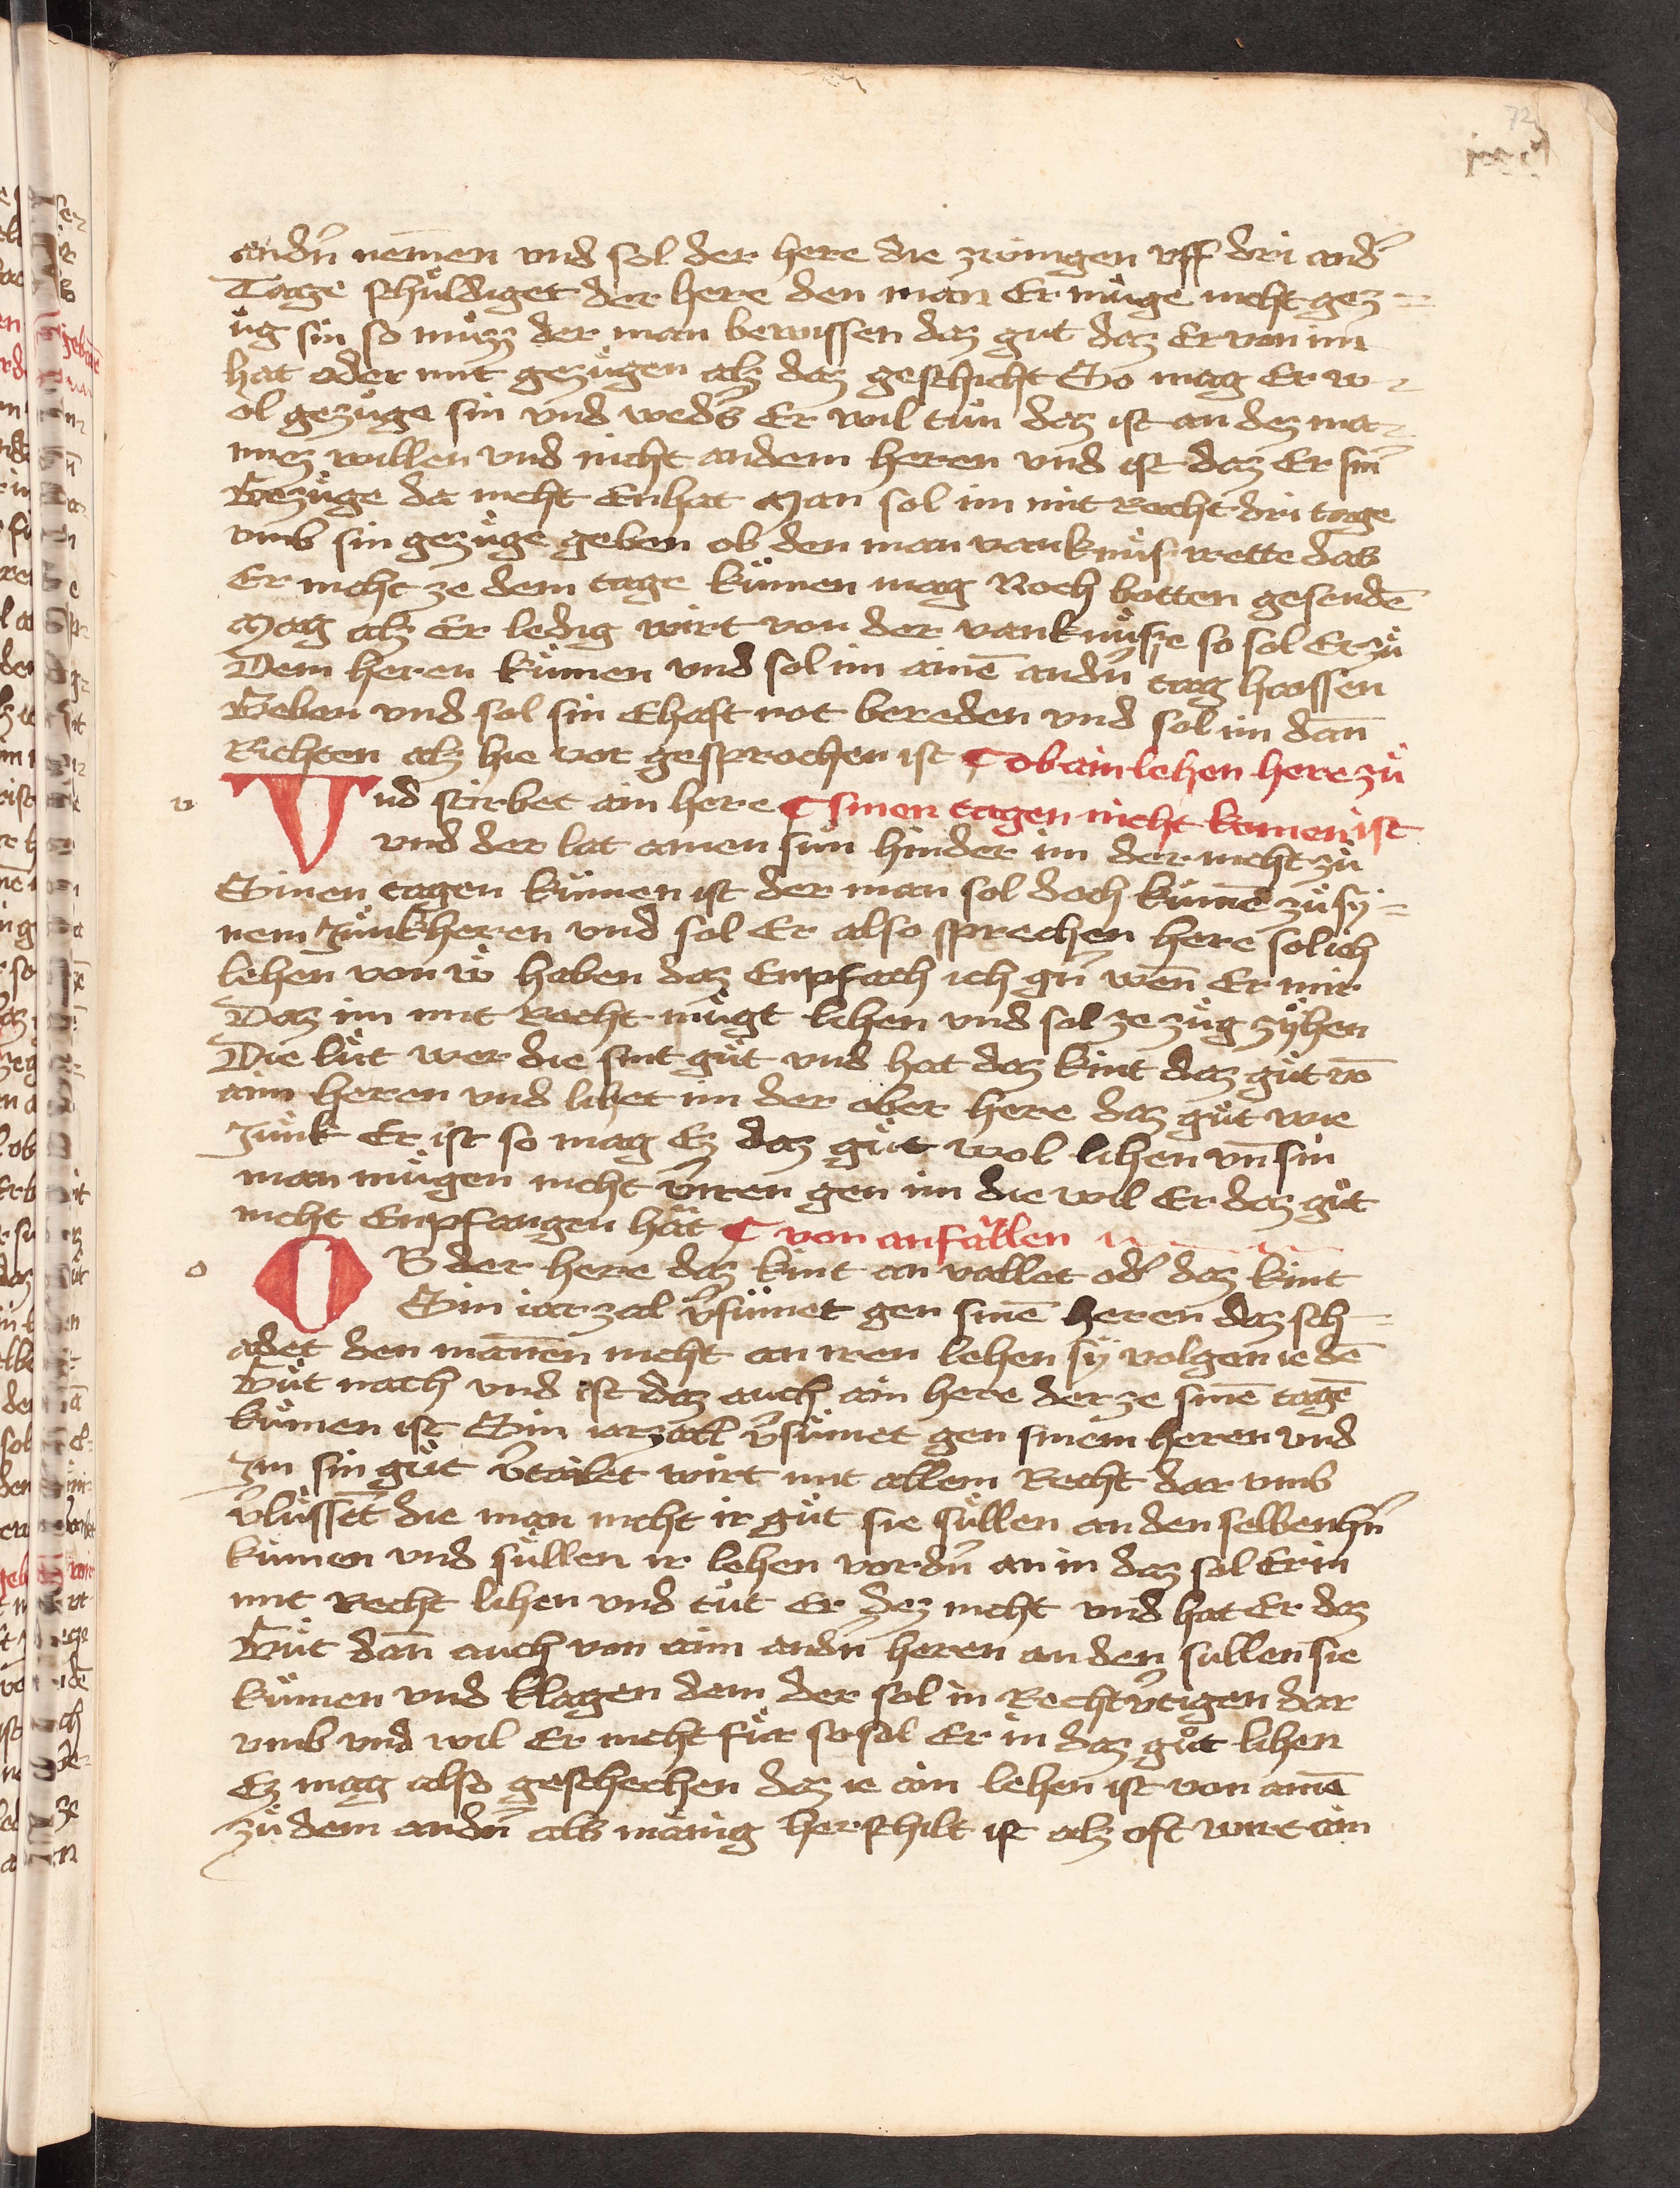 72
andn̄ nem̄en vnd sol der here die zwingen vff dri and̄
Tage schuldiget der here den man Er müge nicht gez=
üg sin so müzz der man bewissen daz gut daz Er von im
hat oder mit gezügen alz daz geschicht So mag Er w=
ol gezüge sin vnd weders Er wil tün daz ist an dez ma=
nnez willen vnd nicht an dem heren vnd ist daz Er sin̄
Gezüge da nicht Enhat Man sol im mit Recht dri tage
vmb sin gezüge geben ob den man vanknüs irrette das
Er nicht ze dem tage kümen mag Noch botten gesendē
Mag alz Er ledig wirt von der vanknüsse so sol Er zü
Dem heren kümen vnd sol im ainē andn̄ tag haissen
Geben vnd sol sin Ehaft not bereden vnd sol im dañ
Richten alz hie vor gesprochen ist ¶ ob ain lehen here zü
v
Vnd stirbet ain here ¶ sinen tagen nicht komen ist
vnd der lat ainen sün hinder im der nicht zü
Sinen tagen kümen ist der man sol doch kümē zü sy=
nem Junkheren vnd sol Er also sprechen here sol ich
lehen von ẘ haben daz Enpfach ich gn̄ wen̄ Er mir
Daz im mit Recht mügt lihen vnd sol ze züg zÿhen
Die lüt wer die sint güt vnd hat daz kint daz güt vō
aim heren vnd lihet im der ober here daz güt wie
Junk Er ist so mag Ez daz güt wol lihen vn̄ sin
man mügen nicht v̄iren gen im die wil Er daz güt
nicht Enpfangen hät ¶ von anfällen
o
OB der here daz kint an vallet od̄ daz kint
Sin iarzal v̄sümet gen sinē heren daz sch=
adet den man̄en nicht an iren lehen sÿ volgen ie dē
Güt nach vnd ist daz auch ain here der ze sinē tagē
kümen ist Sin iarzall v̄sümet gen sinem heren vnd
Im sin güt v̄tailet wirt mit allem Recht dar vmb
v̄lüssēt die man nicht ir güt sie süllen an den selben hn̄
kümen vnd süllen ir lehen vordn̄ an in daz sol Er in
mit Recht lihen vnd tüt Er dez nicht vnd hat Er daz
Güt dan̄ auch von aim andn̄ heren an den sullen sie
kümen vnd klagen dem der sol in Rechtv̄tigen dar
vmb vnd wil Er nicht für so sol Er in daz güt lihen
Ez mag also geschechen daz ie ain lehen ist von ainē
zü dem andn̄ als mänig herschilt ist alz oft wirt ain